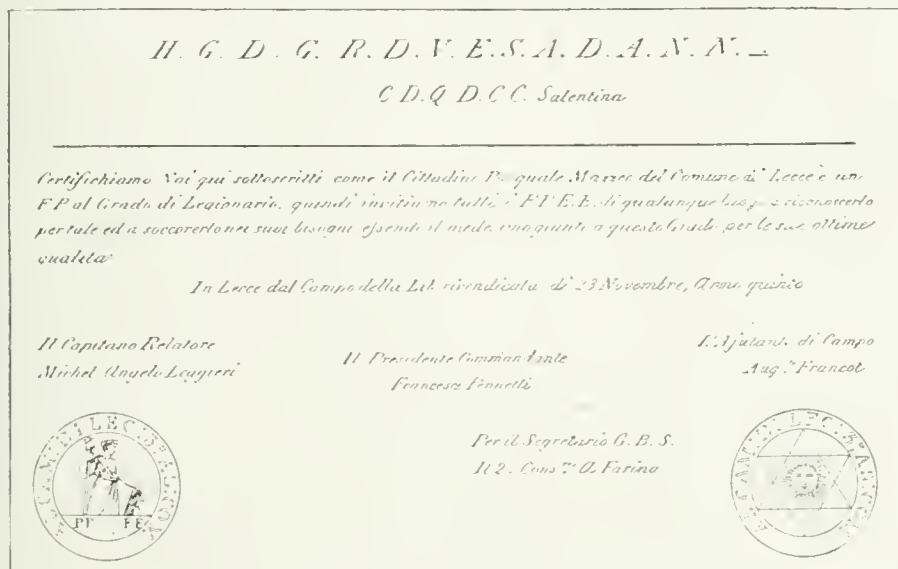 Il. G. D. G. R. D. V. E. S. A. D. A. N. N.
C D. Q D. C C. Salentina
Certifichiamo Noi qui sottoscritti come il Cittadino Marzec del Comune di Lecce è un
F P al Grado di Legionario, quindi tutti i di qualunque riconoscerlo
per tale ed a soccorrerlo nei suoi bisogni essendo il a questo Grado per le sue ottime
qualità
In Lecce dal Campo della Lib. rivendicata di 23 Novembre, Anno quinto
Il Capitano Relatore
Michel Angelo Leggieri
Il Presidente Commandante
L'Ajutant. di Campo
Aug.º Francot
Per il Segretario G. B. S.
Il 2. Cons.re A. Farina
PF FE